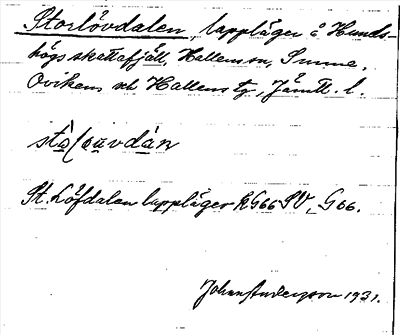 Storlövdalen, lappläger å Hunds-
högs skattefjäll, Hallens sn, Sunne,
Ovikens och Hallens tg, Jämtl. l.
St. Löfdalen lappläger KG66 SV, G66.
Johan Anderzon 1931.